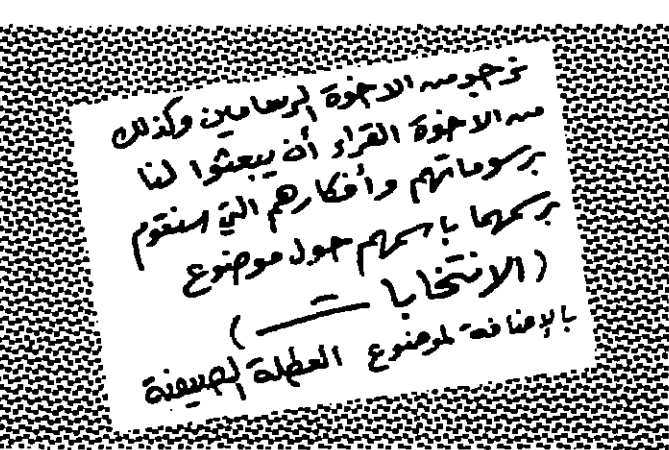 نرجو من الاخوة الرسامين وكذلك
من الاخوة القراء أن يبعثوا لنا
برسوماتهم وأفكارهم التي سنقوم
برسمها باسمهم حول موضوع
(الانتخابات)
بالإضافة لموضوع العطلة الصيفية